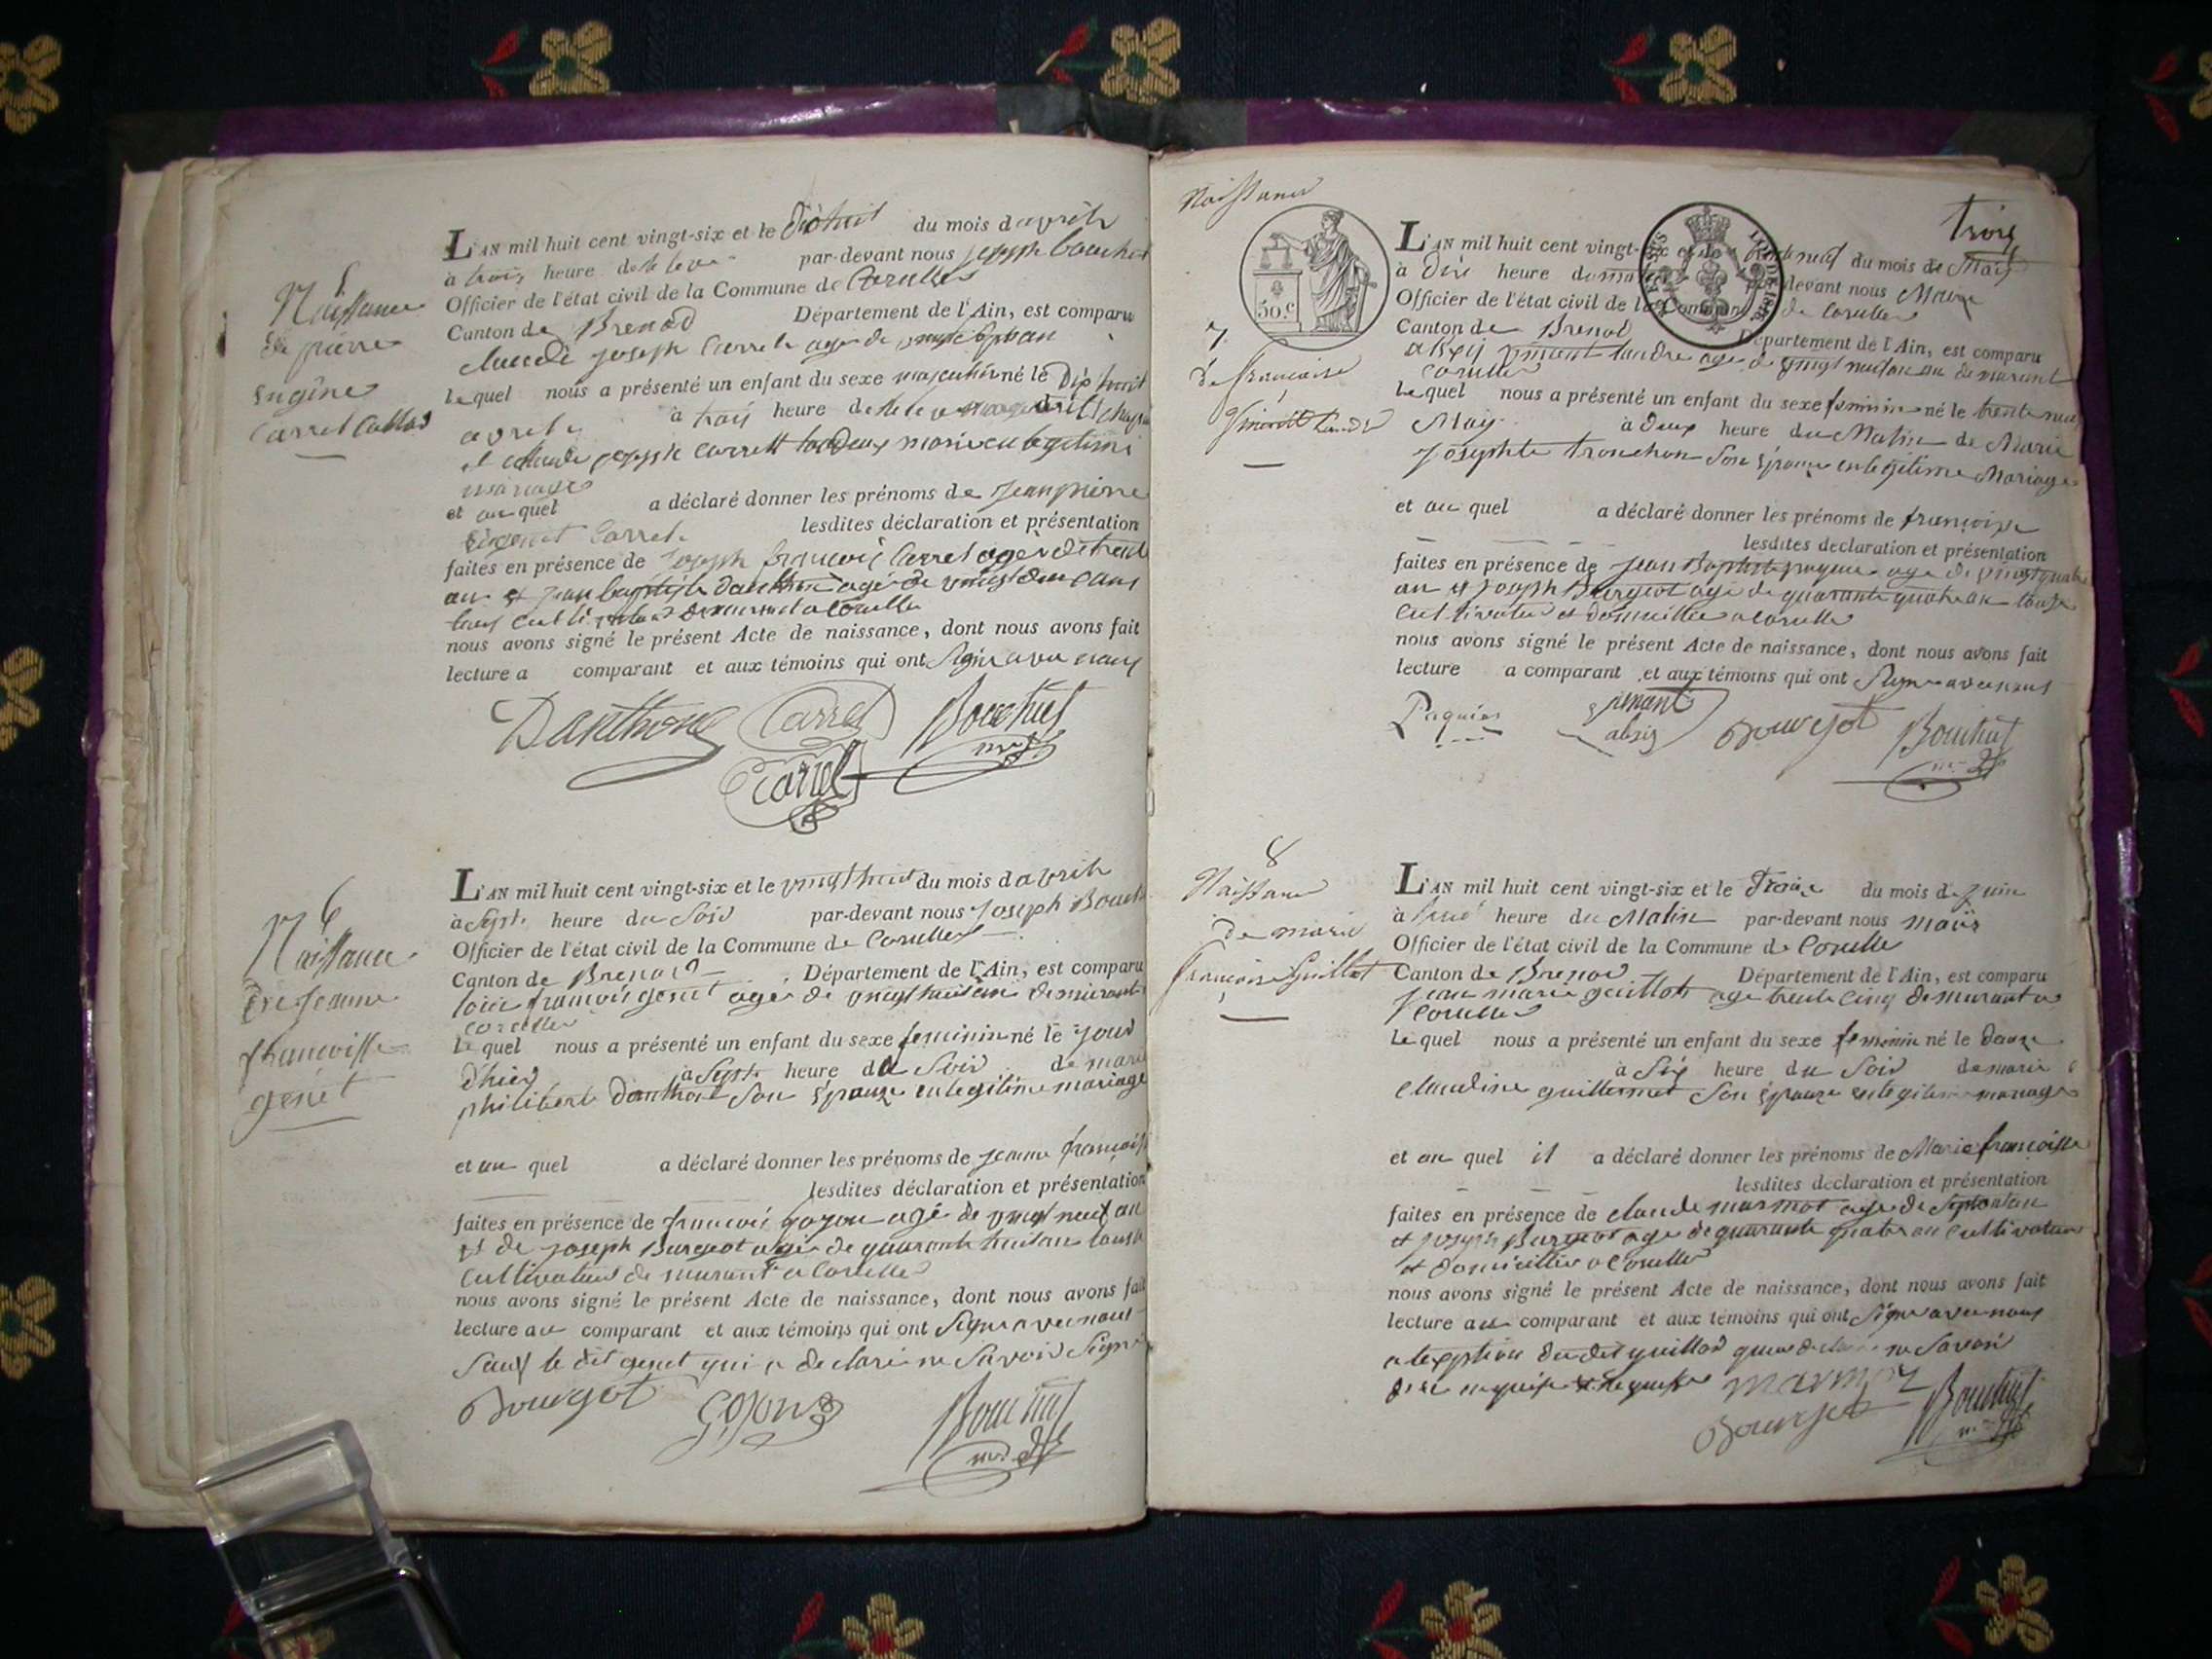 5
Naissance
de pierre
Eugène
Carret Callod
L'AN mil huit cent vingt-six et le Dixhuit du mois d avril
à trois heure par-devant nous joseph bouchut
Officier de l'état civil de la Commune de Corcelles
Canton de Brenod Département de l'Ain, est comparu
claude joseph Carret age de vingt sept an
le quel nous a présenté un enfant du sexe masculin né le Dix huit
avril à trois heure
et claude joseph Carret tout deux marié en legitime
mariage
et au quel a déclaré donner les prénoms de jean pierre
Carret lesdites déclaration et présentation
faites en présence de joseph françois Carret agé de trente
an et jean baptiste danthon agé de vingt deux ans
tous cultivateur demeurant a Corcelle
nous avons signé le présent Acte de naissance, dont nous avons fait
lecture a comparant et aux témoins qui ont Signé avec nous
Danthone Carret Bouchut
Carret
6
Naissance
De jeanne
francoisse
genet
L'AN mil huit cent vingt-six et le vingt huit du mois d avril
à Sept heure du Soir par-devant nous Joseph Bouchut
Officier de l'état civil de la Commune de Corcelles
Canton de Brenod Département de l'Ain, est comparu
françois genet agé de vingt huit an demeurant
corcelles
le quel nous a présenté un enfant du sexe feminin né le jour
d'hier à Sept heure du Soir de marie
philiberte Danthon Son Epouze en legitime mariage
et au quel a déclaré donner les prénoms de jeanne françoise
lesdites déclaration et présentation
faites en présence de françois goyon agé de vingt neuf an
et de joseph Burgeot agé de quarante huit an tous
cultivateur demeurant a Corcelles
nous avons signé le présent Acte de naissance, dont nous avons fait
lecture au comparant et aux témoins qui ont Signé avec nous
Sauf le dit genet qui a declaré ne Savoir Signé
Bourgot Gojon Bouchut
Naissance
7
de françoise
Vincent
50.c
trois
L'AN mil huit cent vingt-six et le trente neuf du mois de May
à Dix heure du matin par-devant nous Maire
Officier de l'état civil de la Commune de Corcelles
Canton de Brenod Département de l'Ain, est comparu
alexis vincent age de vingt an demeurant
Corcelles
le quel nous a présenté un enfant du sexe feminin né le trente
May à deux heure du Matin de Marie
josephte tronchon Son Epouze en legitime Mariage
et au quel a déclaré donner les prénoms de françoise
lesdites declaration et présentation
faites en présence de jean Baptiste age de vingt quatre
an et joseph Burgeot agé de quarante quatre an tous
cultivateur et domicillié a Corcelle
nous avons signé le présent Acte de naissance, dont nous avons fait
lecture a comparant et aux témoins qui ont Signé avec nous
Paquier vincent alexis Bourgot Bouchut
8
Naissance
De marie
françoise Guillot
L'AN mil huit cent vingt-six et le Traize du mois de juin
à heure du Matin par-devant nous maire
Officier de l'état civil de la Commune de Corcelle
Canton de Brenod Département de l'Ain, est comparu
jean marie guillot age trente cinq demeurant a
Corcelles
le quel nous a présenté un enfant du sexe feminin né le douze
à Six heure du Soir de marie
claudine guillermet Son Epouze en legitime mariage
et au quel il a déclaré donner les prénoms de Marie françoise
lesdites déclaration et présentation
faites en présence de claude marmot age de
et joseph Burgeot age de quarante quatre an cultivateur
et domicillié a Corcelle
nous avons signé le présent Acte de naissance, dont nous avons fait
lecture au comparant et aux témoins qui ont Signé avec nous
a lexeption du dit guillot ne Savoir
de ce enquis et requis
Bourgot Bouchut